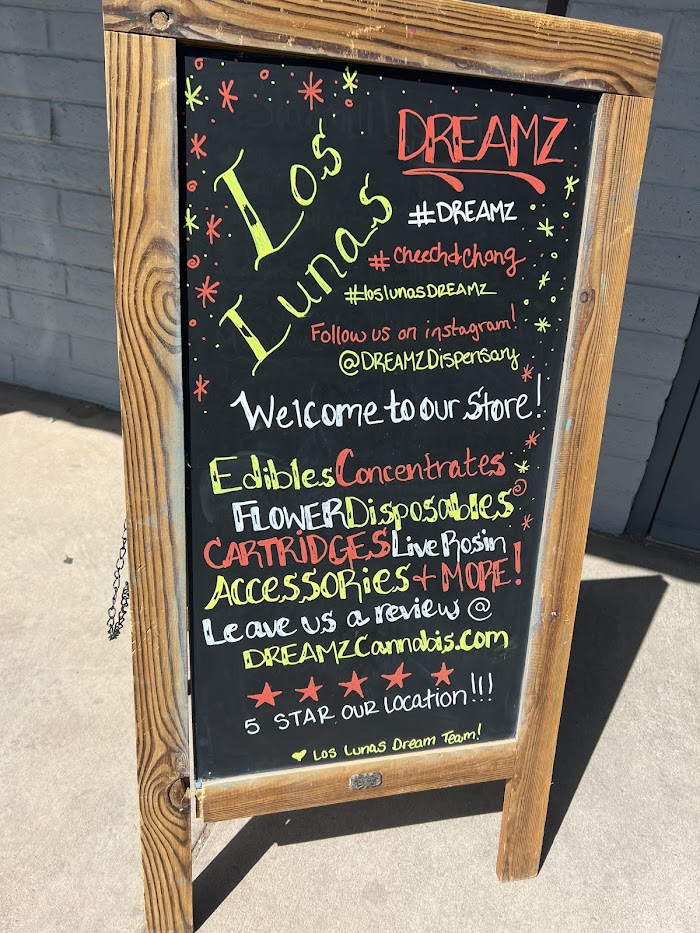 Los
Lunas
DREAMZ
#DREAMZ
#cheech&chong
#loslunasDREAMZ
Follow us on instagram!
@DREAMZDispensary
Welcome to our Store!
Edibles Concentrates
FLOWER Disposables
CARTRIDGES Live Rosin
ACCESSORIES + MORE!
Leave us a review @
DREAMZCannabis.com
5 STAR OUR Location!!!
Los Lunas Dream Team!